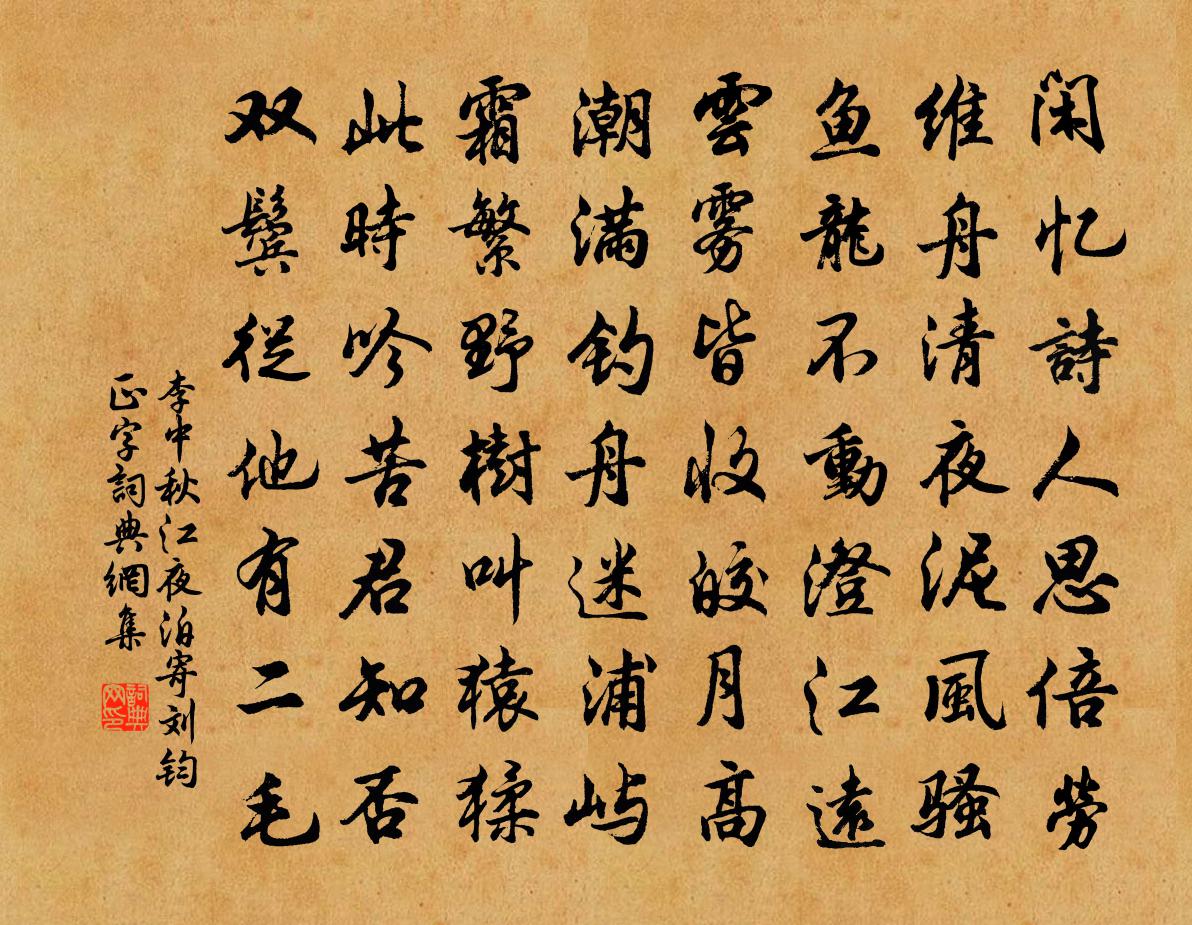 闲忆詩人思倍勞
维舟清夜泥風骚
鱼龍不動澄江遠
雲雾皆收皎月高
潮滿钓舟迷浦屿
霜繁野樹叫猿猱
此時吟苦君知否
双鬓從他有二毛
李中秋江夜泊寄刘钧
正字詞典網集
詞典网印